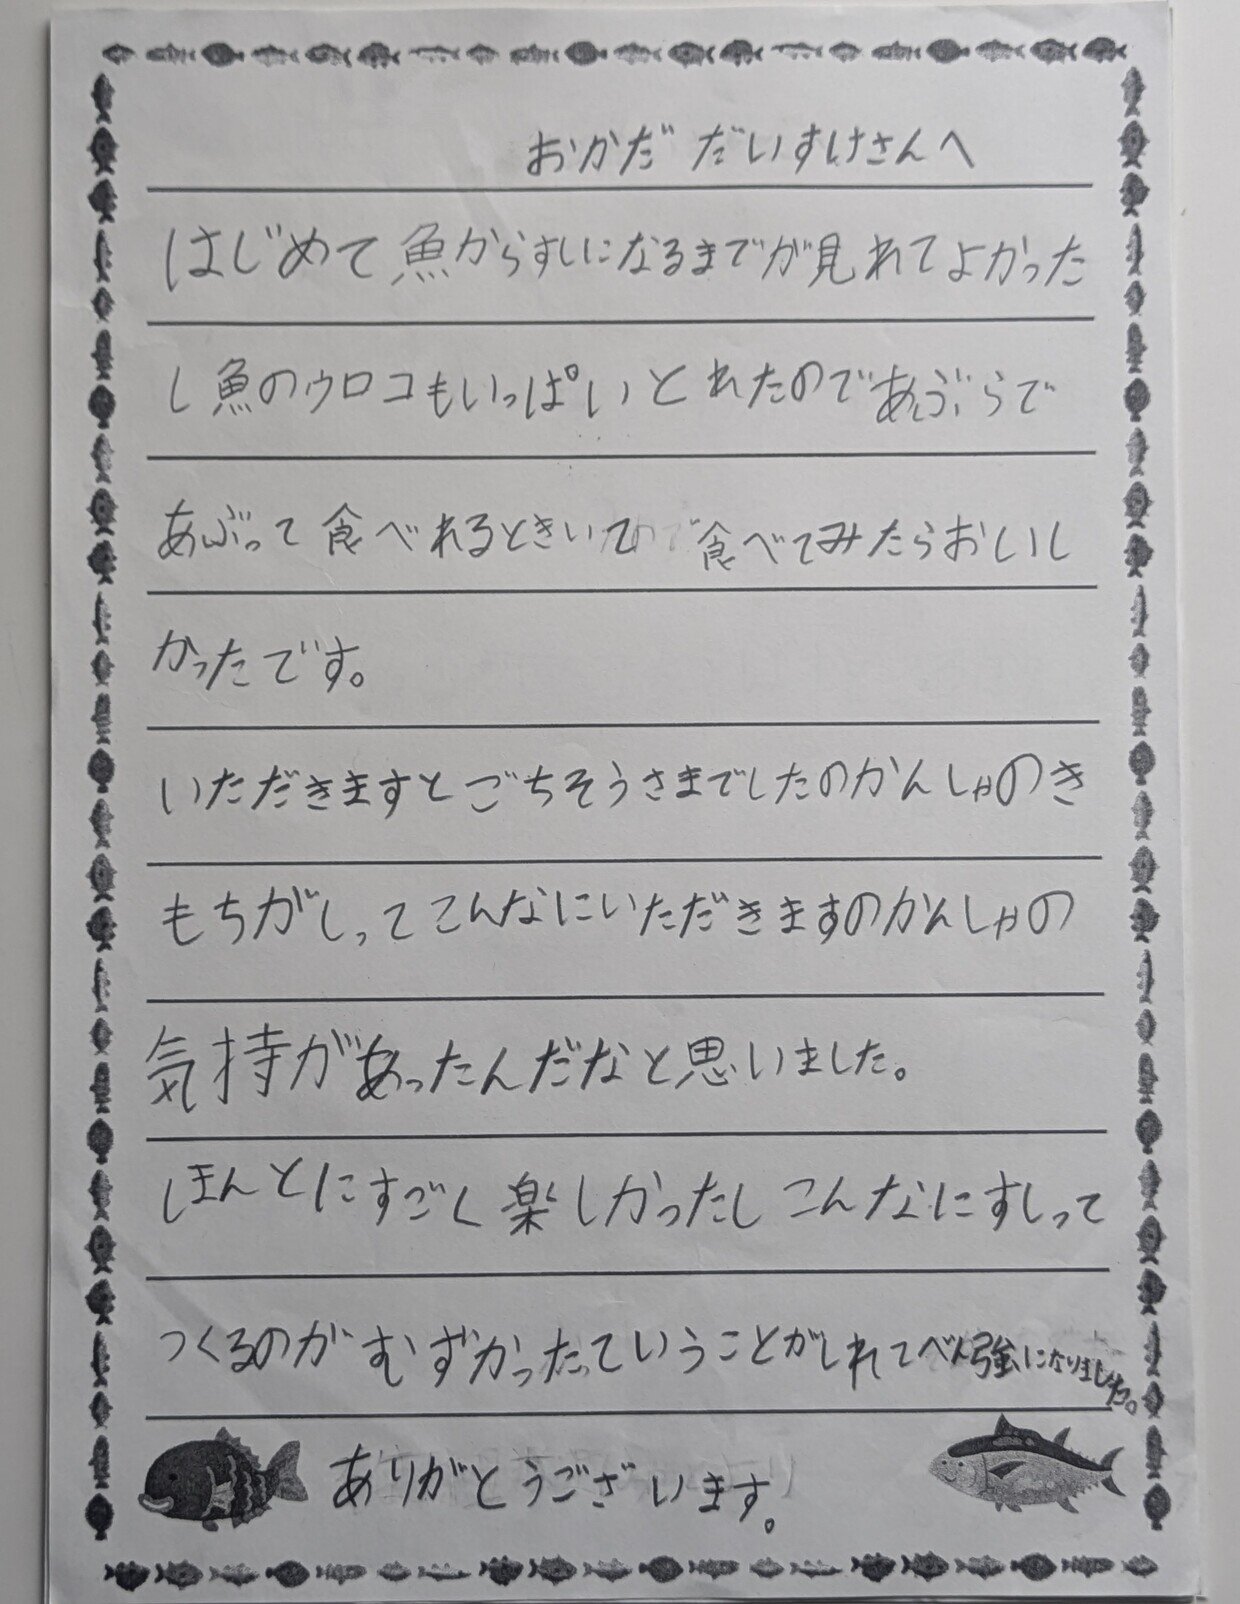 おかだ だいすけさんへ
はじめて魚からすしになるまでが見れてよかった
し魚のウロコもいっぱいとれたのであぶらで
あぶって食べれるときいて食べてみたらおいし
かったです。
いただきますとごちそうさまでしたのかんしゃのき
もちがしってこんなにいただきますのかんしゃの
気持があったんだなと思いました。
ほんとにすごく楽しかったしこんなにすしって
つくるのがむずかったっていうことがしれてべん強になりました。
ありがとうございます。